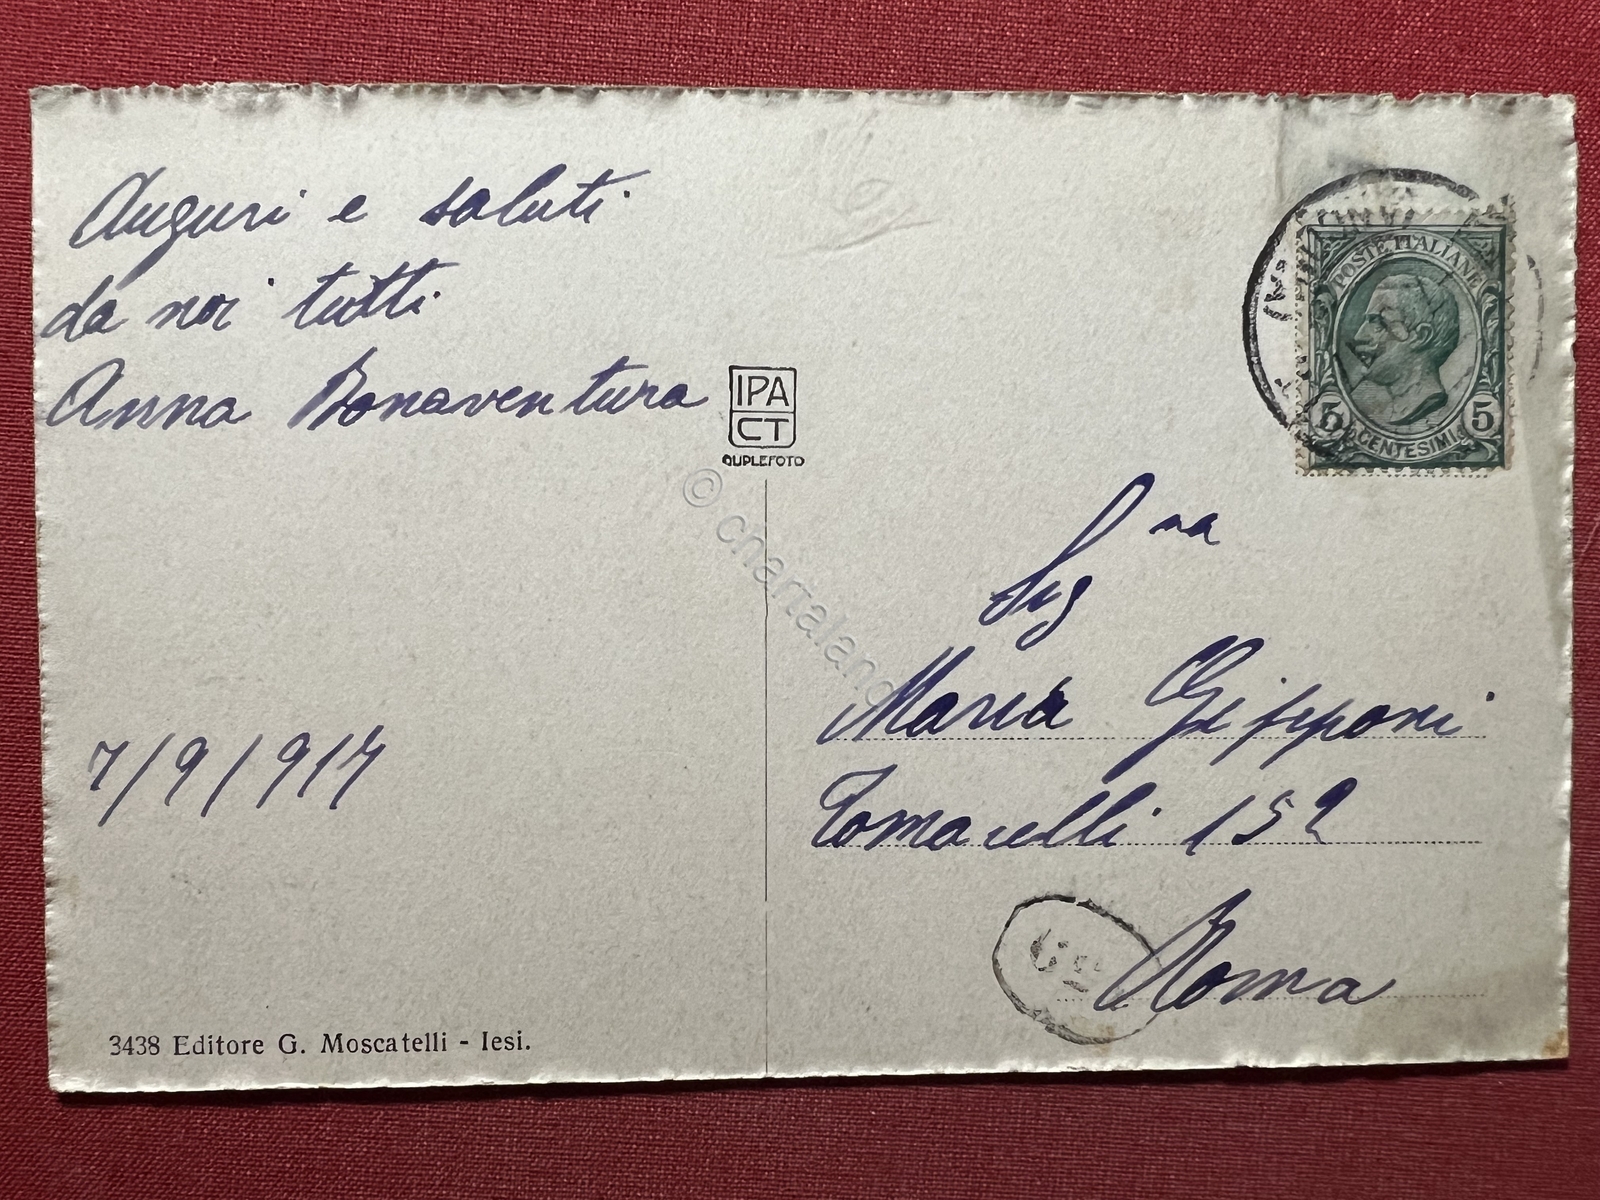 Auguri e saluti
da noi tutti
Anna Bonaventura
7/9/917
3438 Editore G. Moscatelli - Iesi.
IPA
CT
DUPLEFOTO
© chartaland
POSTE ITALIANE
5 CENTESIMI 5
Sig na
Maria
Tomacelli 152
Roma